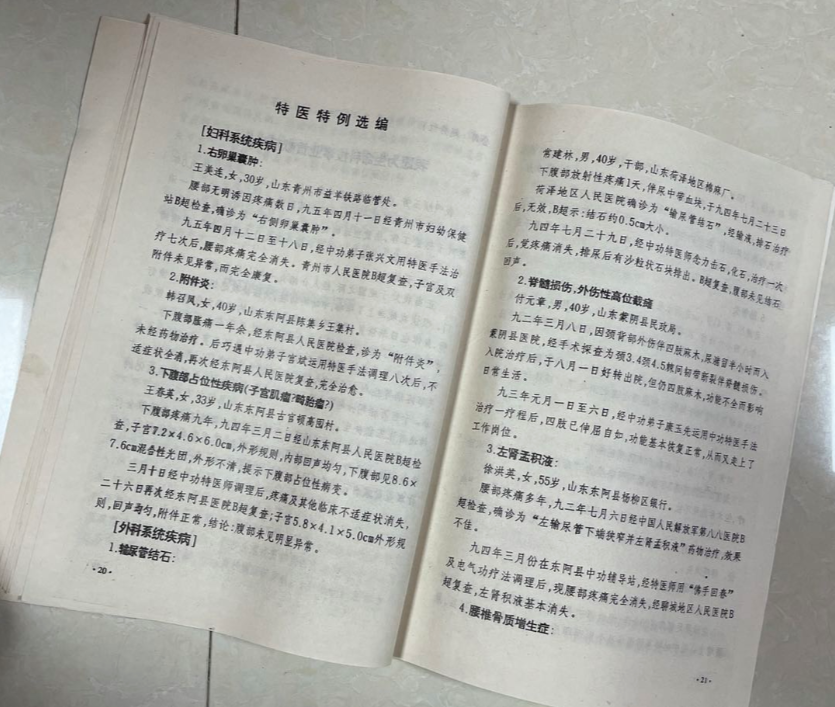 特医特例选编
[妇科系统疾病]
1.右卵巢囊肿:
王美连,女,30岁,山东青州市益羊铁路临管处。
腰部无明诱因疼痛数日,九五年四月十一日经青州市妇幼保健
站B超检查,确诊为“右侧卵巢囊肿”。
九五年四月十二日至十八日,经中功弟子张兴文用特医手法治
疗七次后,腰部疼痛完全消失。青州市人民医院B超复查,子宫及双
附件未见异常,而完全康复。
2.附件炎:
韩召凤,女,40岁,山东东阿县陈集乡王集村。
下腹部胀痛一年余,经东阿县人民医院检查,诊为“附件炎”,
未经药物治疗。后巧遇中功弟子宫斌运用特医手法调理八次后,不
适症状全消,再次经东阿县人民医院复查,完全治愈。
3.下腹部占位性疾病(子宫肌瘤?畸胎瘤?)
王春英,女,33岁,山东东阿县古官顿高园村。
下腹部疼痛九年,九四年三月二日经山东东阿县人民医院B超检
查,子宫7.2×4.6×6.0cm,外形规则,内部回声均匀,下腹部见8.6×
7.6cm混合性光团,外形不清,提示下腹部占位性病变。
三月十日经中功特医师调理后,疼痛及其他临床不适症状消失,
二十六日再次经东阿县医院B超复查;子宫5.8×4.1×5.0cm外形规
则,回声均匀,附件正常,结论:腹部未见明显异常。
[外科系统疾病]
1.输尿管结石:
·20·
常建林,男,40岁,干部,山东荷泽地区棉麻厂。
下腹部放射性疼痛1天,伴尿中带血块,于九四年七月二十三日
荷泽地区人民医院确诊为“输尿管结石”,经输液,排石治疗
后,无效,B超示:结石约0.5cm大小。
九四年七月二十九日,经中功特医师念力击石,化石,治疗一次
后,觉疼痛消失,排尿后有沙粒状石块排出。B超复查,腹部未见结石
回声。
2.脊髓损伤,外伤性高位截瘫
付元章,男,40岁,山东蒙阴县民政局。
九二年三月八日,因颈背部外伤伴四肢麻木,尿潴留半小时而入
蒙阴县医院,经手术探查为颈3.4颈4.5棘间韧带断裂伴脊髓损伤。
入院治疗后,于八月一日好转出院,但仍四肢麻木,功能不全而影响
日常生活。
九三年元月一日至六日,经中功弟子康玉先运用中功特医手法
治疗一疗程后,四肢已伸屈自如,功能基本恢复正常,从而又走上了
工作岗位。
3.左肾孟积液:
徐洪英,女,55岁,山东东阿县杨柳区银行。
腰部疼痛多年,九二年七月六日经中国人民解放军第八八医院B
超检查,确诊为“左输尿管下端狭窄并左肾孟积液”药物治疗,效果
不佳。
九四年三月份在东阿县中功辅导站,经特医师用“佛手回春”
及电气功疗法调理后,现腰部疼痛完全消失,经聊城地区人民医院B
超复查,左肾积液基本消失。
4.腰椎骨质增生症:
·21·